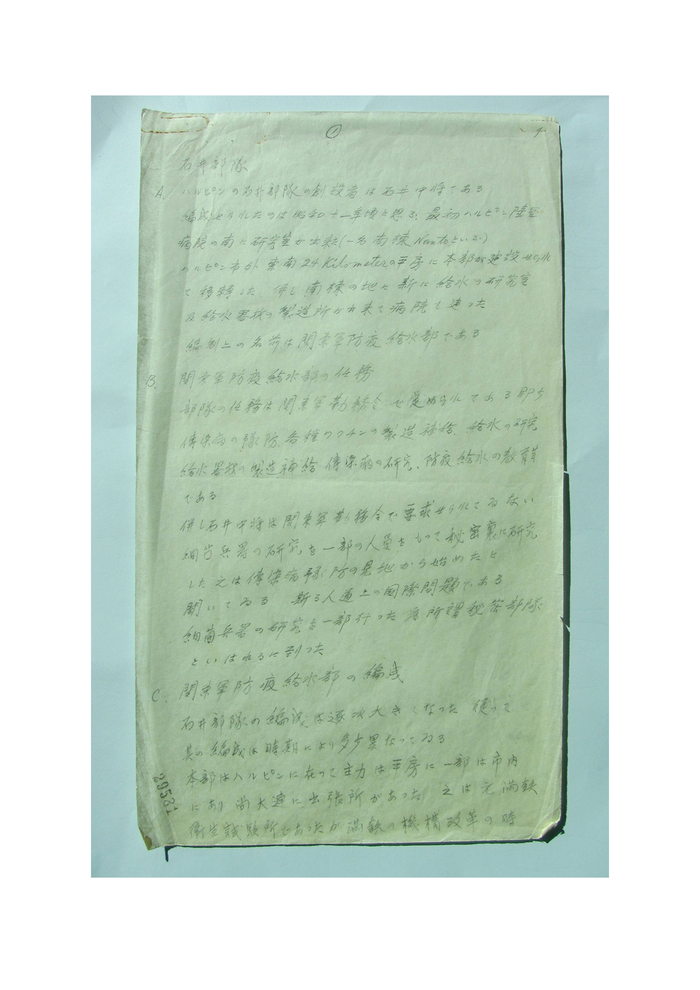 ①
石井部隊
A. ハルピンの石井部隊の創設者は石井中将である
編成せられたのは昭和十一年頃と思う、最初ハルピン陸軍
病院の南に研究室が出来(一名南棟Nantoといふ)
ハルピン市から東南24Kilometerの平房に本部が建設せられ
て移転した 併し南棟の地に新に給水の研究室
及給水器材の製造所が出来て病院も建った
編制上の名前は関東軍防疫給水部である
B. 関東軍防疫給水部の任務
部隊の任務は関東軍勤務令で定められてある即ち
傳染病の豫防、各種ワクチンの製造補給、給水の研究
給水器材の製造補給 傳染病の研究、防疫給水の教育
である
併し石井中将は関東軍勤務令で要求せられてゐない
細菌兵器の研究を一部の人員をもって秘密裏に研究
した 之は傳染病豫防の見地から始めたと
聞いてゐる 斯る人道上の国際問題である
細菌兵器の研究を一部行った為所謂秘密部隊
といはれるに到った
C. 関東軍防疫給水部の編成
石井部隊の編成は逐次大きくなった 従って
其の編成は時期により多少異なってゐる
本部はハルピンに在って主力は平房に一部は市内
にあり 尚大連に出張所があった 之は元満鉄
衛生試験所であったが満鉄の機構改革の時
29531